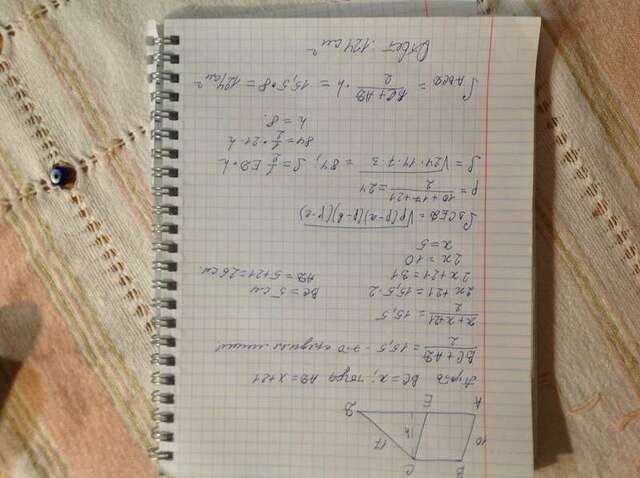 B C
10 17
h
A E D
Пусть BC = x; тогда AD = x+21
BC+AD/2 = 15,5 - это средняя линия.
x+x+21/2 = 15,5
2x+21 = 15,5·2 BC = 5 см
2x+21 = 31 AD = 5+21 = 26 см.
2x = 10
x = 5
S△CED = √p(p-a)(p-b)(p-c)
p = 10+17+21/2 = 24
S = √24·14·7·3 = 84; S = 1/2 ED·h
84 = 1/2·21·h
h = 8.
SABCD = BC+AD/2 · h = 15,5·8 = 124 см²
Ответ: 124 см²